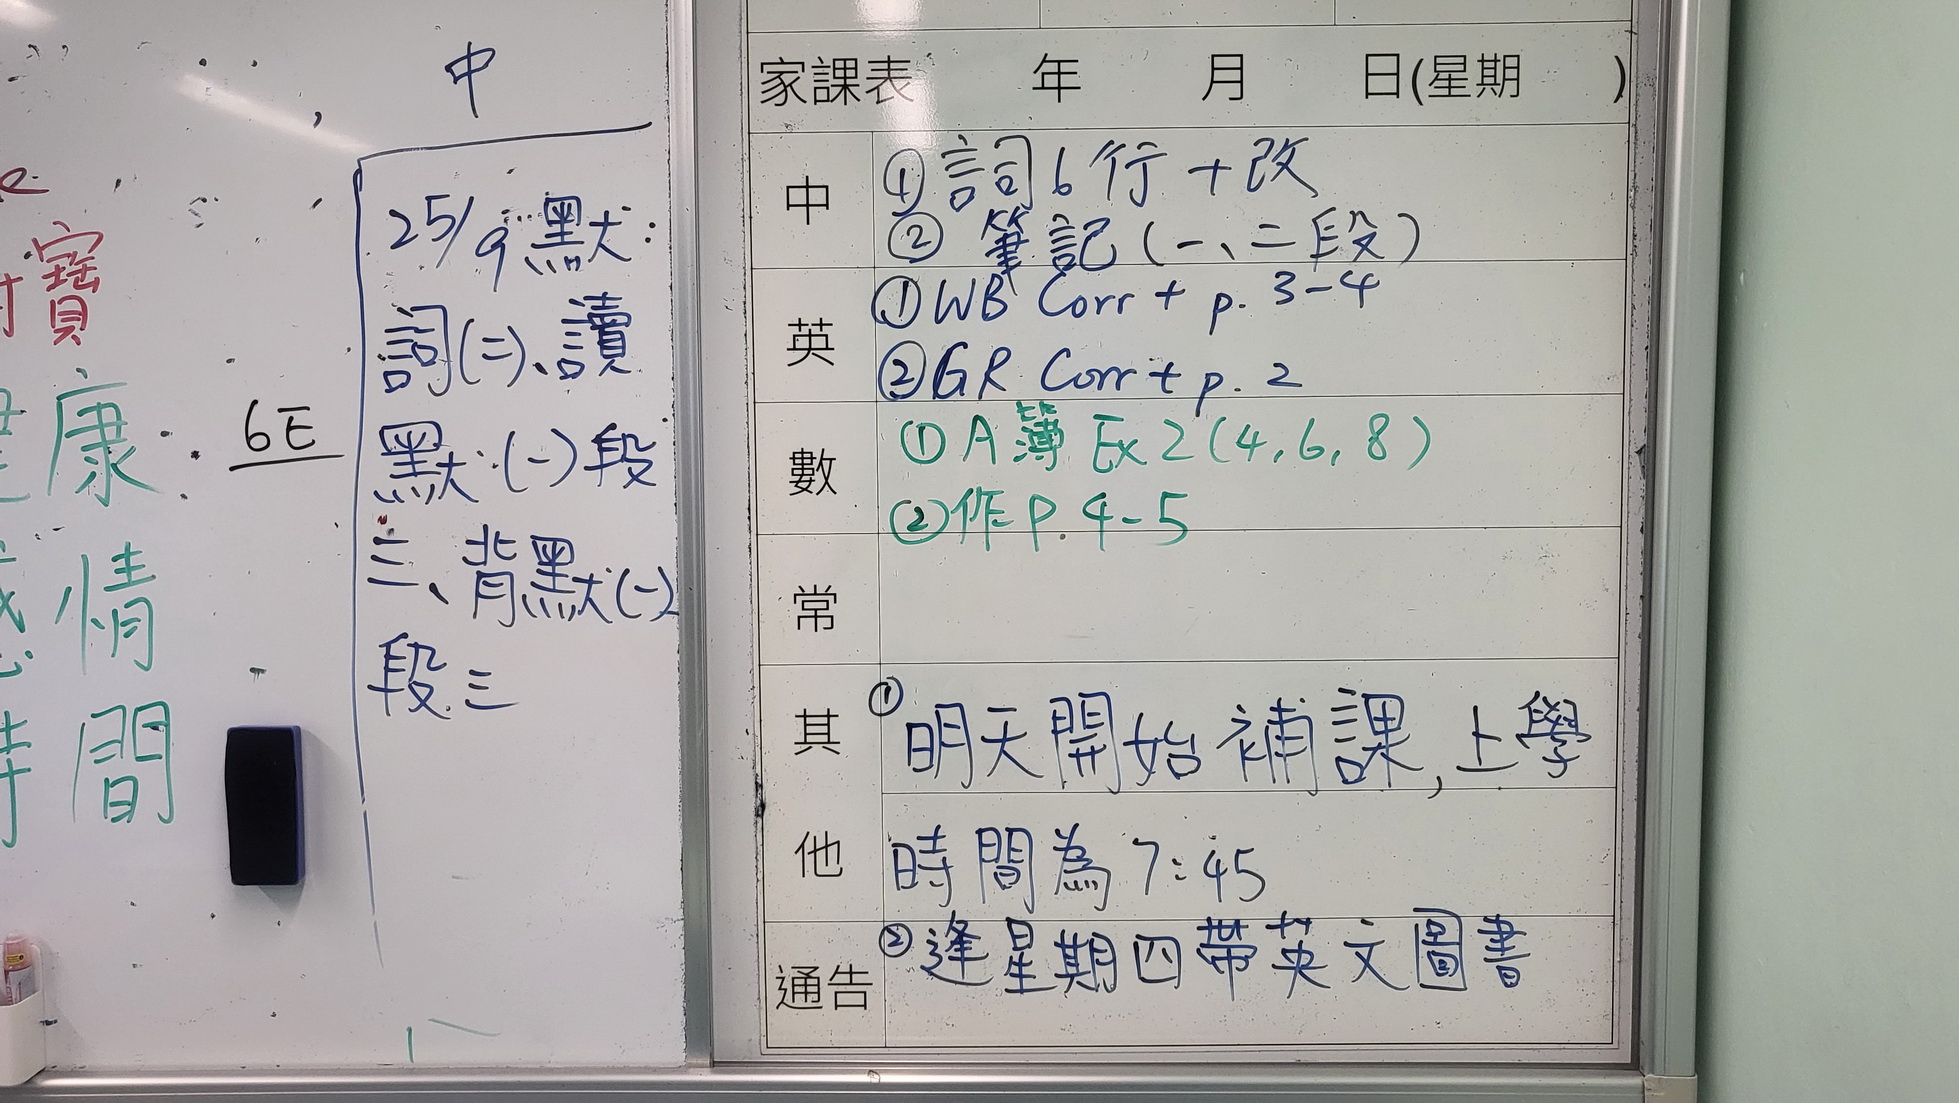 中
25/9默:
詞(二)、讀
默:(一)段
三、背默(一)
段三
6E
寶
康
情
時間
家課表 年 月 日(星期 )
中
①詞6行+改
②筆記(一、二段)
英
①WB Corr + p. 3-4
②GR Corr + p. 2
數
①A簿 Ex 2(4,6,8)
②作P.4-5
常
其他
①明天開始補課,上學
時間為7:45
通告
②逢星期四帶英文圖書